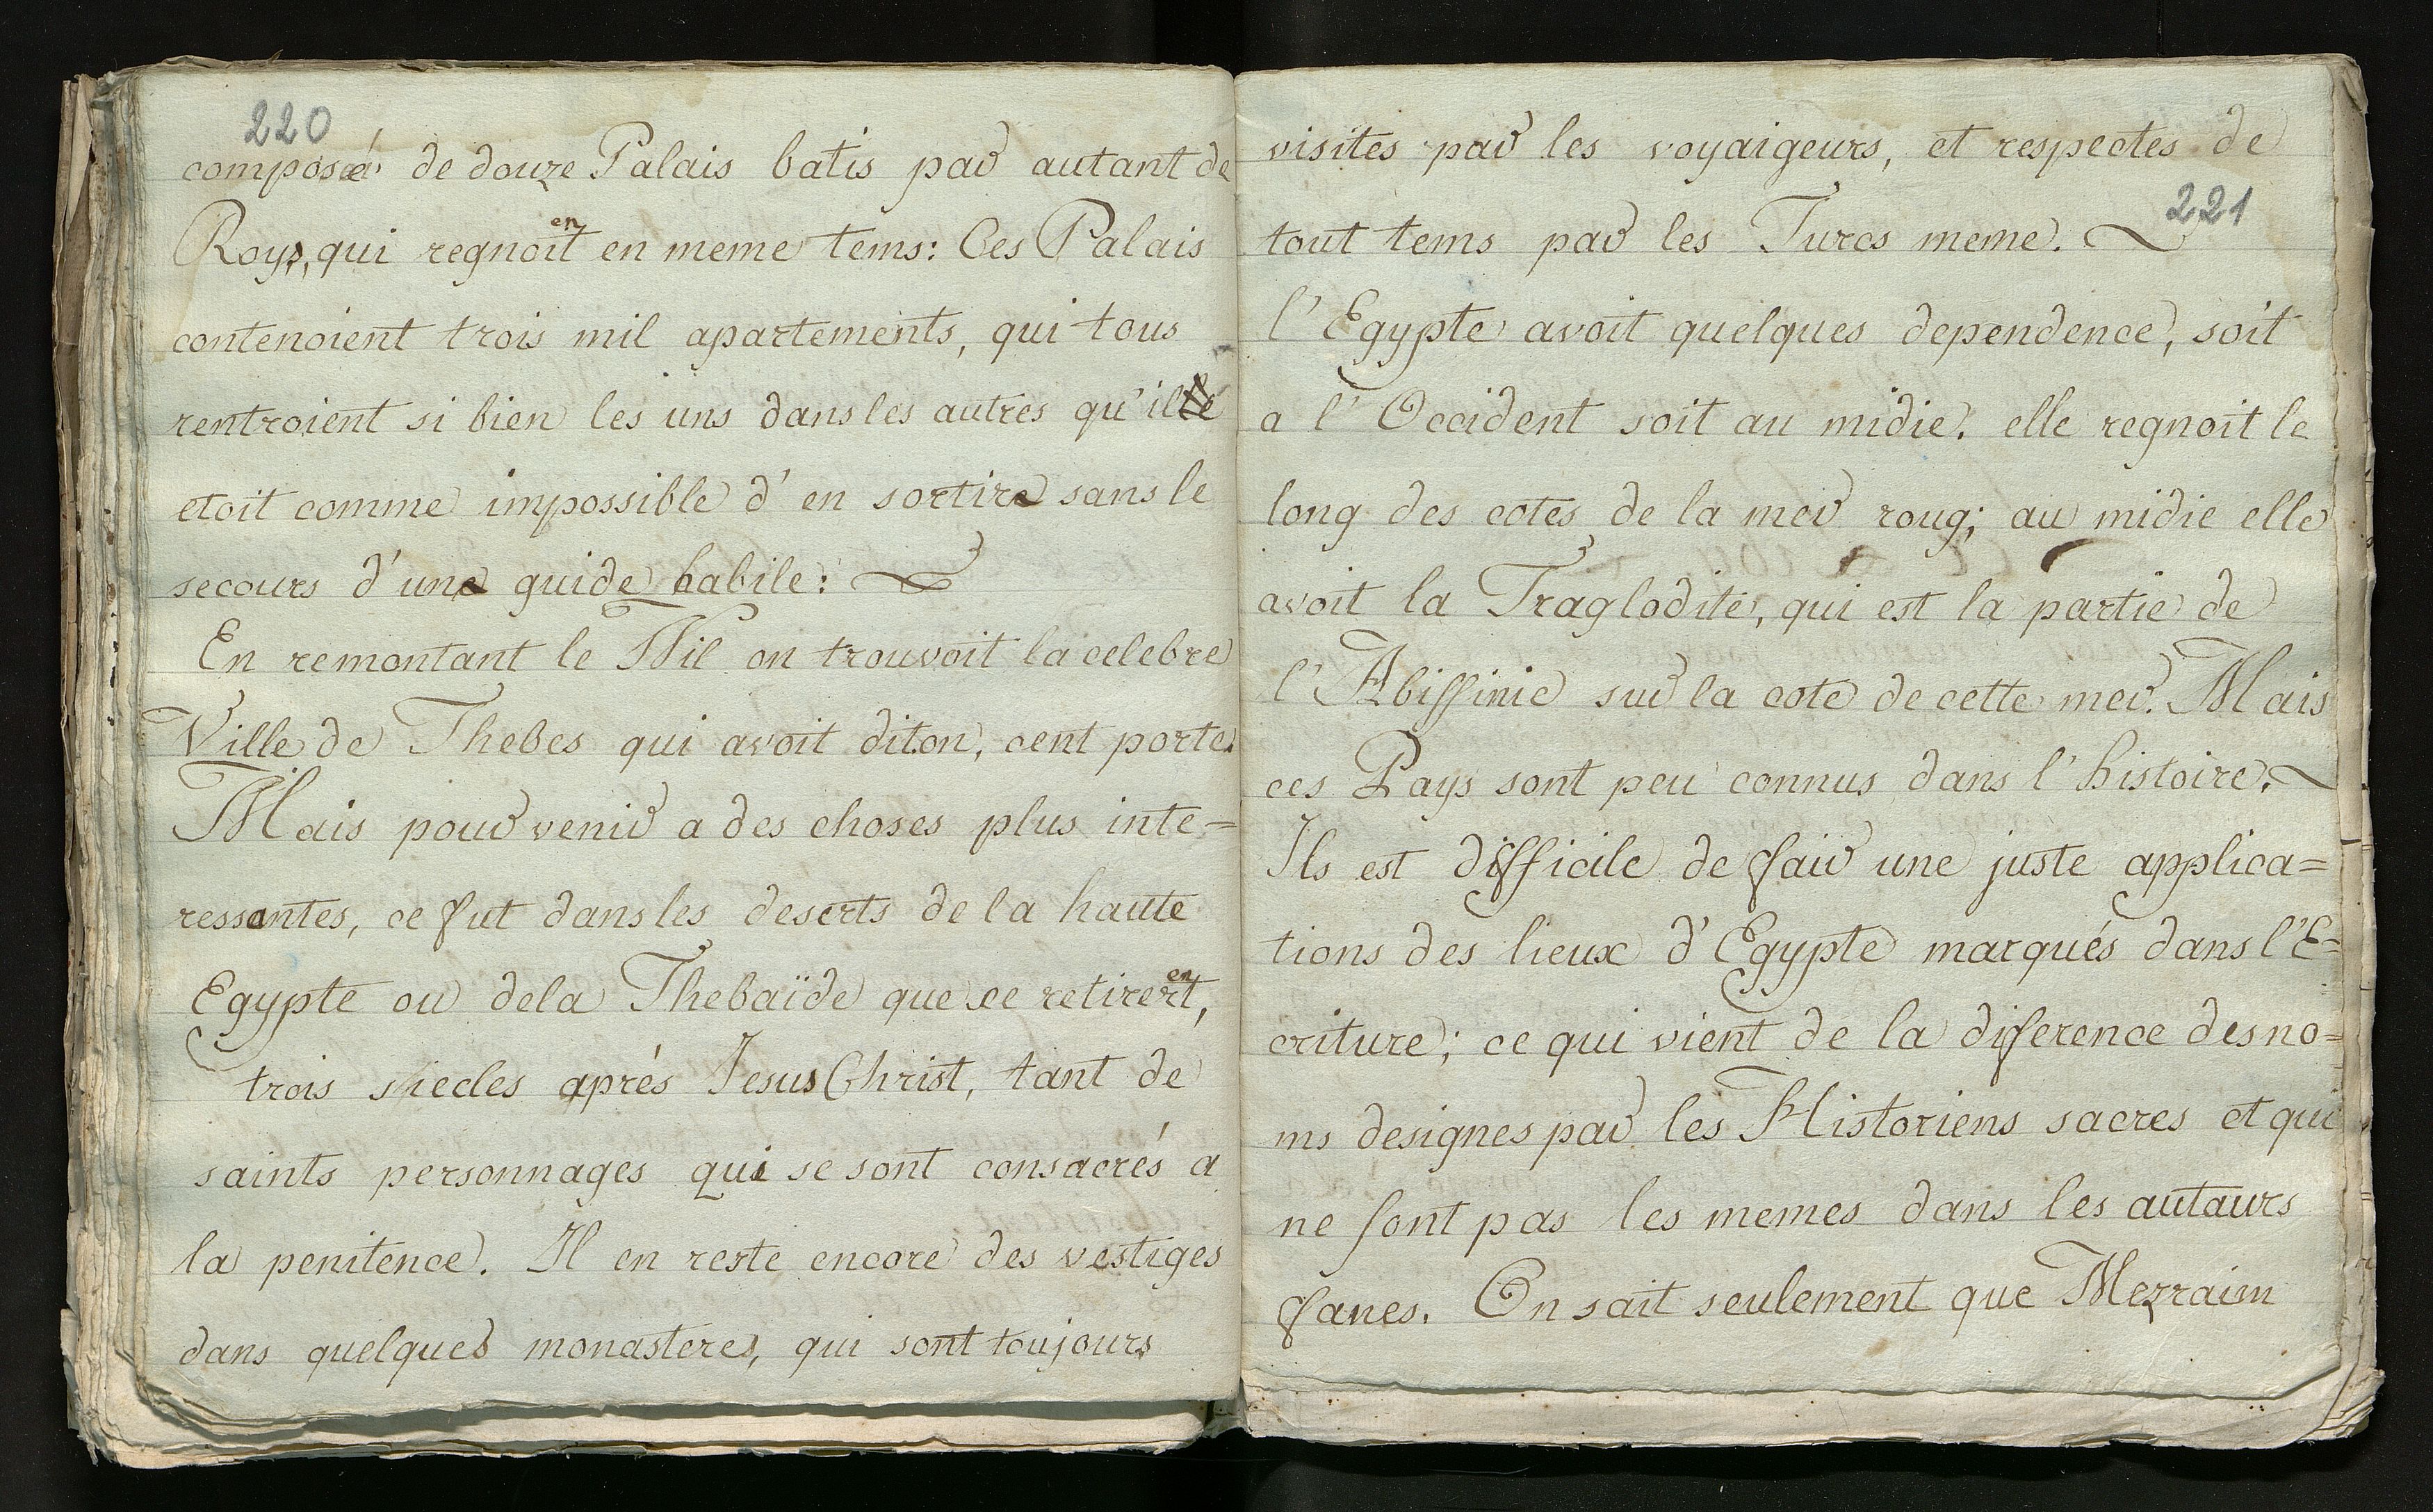 220
composé de douze Palais batis par autant de
Roys, qui regnoient en meme tems: Ces Palais
contenoient trois mil apartements, qui tous
rentroient si bien les uns dans les autres qu'il
etoit comme impossible d'en sortire sans le
secours d'une guide habile:
En remontant le Nil on trouvoit la celebre
Ville de Thebes qui avoit diton, cent porte.
Mais pour venir a des choses plus inte=
ressantes, ce fut dans les deserts de la haute
Egypte ou dela Thebaïde que se retirerent,
trois siecles aprés Jesus Christ, tant de
saints personnages qui se sont consacrés a
la penitence. Il en reste encore des vestiges
dans quelques monasteres, qui sont toujours
visites par les voyaigeurs, et respectes de
221
tout tems par les Turcs meme.
l'Egypte avoit quelques dependence, soit
a l'Occident soit au midie. elle regnoit le
long des cotes de la mer roug; au midie elle
avoit la Traglodite, qui est la partie de
l'Abissinie sur la cote de cette mer. Mais
ces Pays sont peu connus dans l'histoire.
Ils est difficile de fair une juste applica=
tions des lieux d'Egypte marqués dans l'E=
criture; ce qui vient de la diference des no=
ms designes par les Historiens sacres et qui
ne sont pas les memes dans les autaurs
fanes. On sait seulement que Mezraim